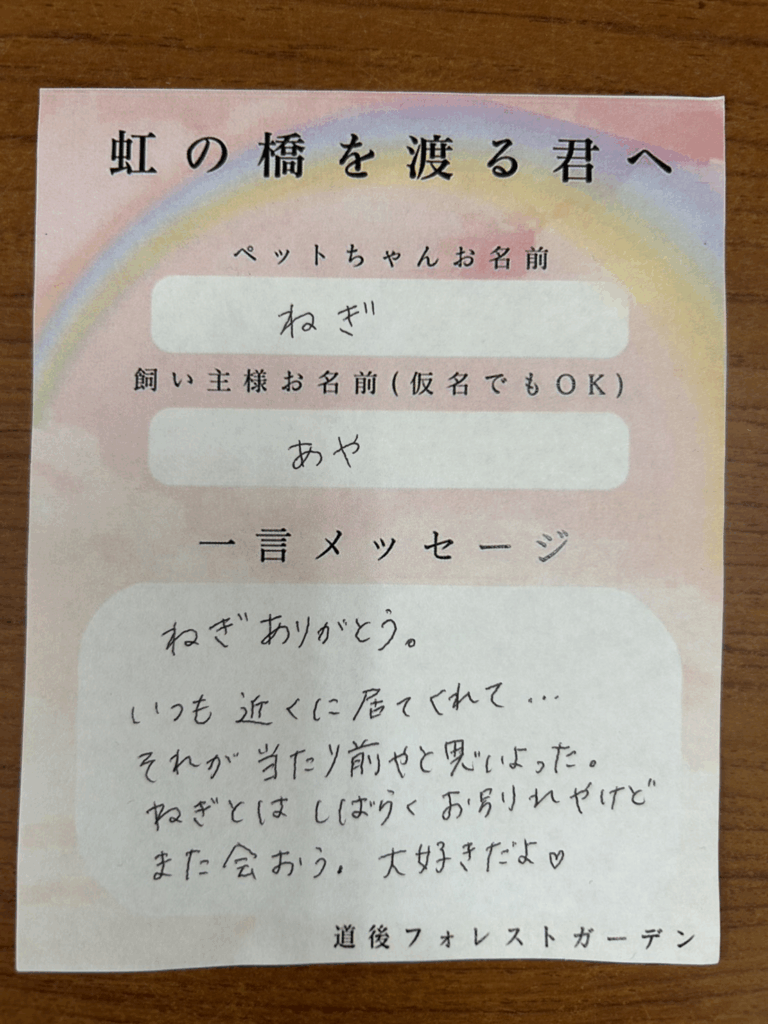 虹の橋を渡る君へ
ペットちゃんお名前
ねぎ
飼い主様お名前(仮名でもOK)
あや
一言メッセージ
ねぎありがとう。
いつも近くに居てくれて…
それが当たり前やと思いよった。
ねぎとはしばらくお別れやけど
また会おう。大好きだよ♡
道後フォレストガーデン